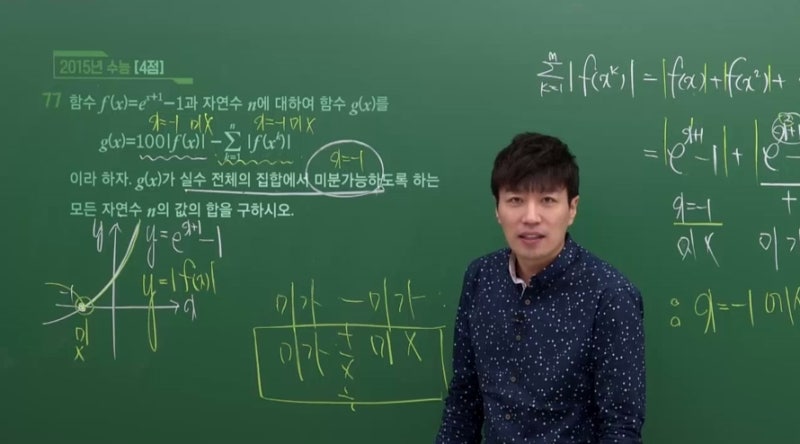 2015년 수능 [4점]
77 함수 f(x)=e^{x+1}-1과 자연수 n에 대하여 함수 g(x)를
x=-1 미X x=-1 미X
g(x)=100|f(x)|-\sum_{k=1}^{n}|f(x^k)|
x=-1
이라 하자. g(x)가 실수 전체의 집합에서 미분가능하도록 하는
모든 자연수 n의 값의 합을 구하시오.
y y=e^{x+1}-1
y=|f(x)|
-1 x
미
X
미가 - 미가 :
미가 + - × ÷ 미X
\sum_{k=1}^{n}|f(x^k)|=|f(x)|+|f(x^2)|+
=|e^{x+1}-1|+|e
x=-1 +
미X 미가
∴ x=-1 미X